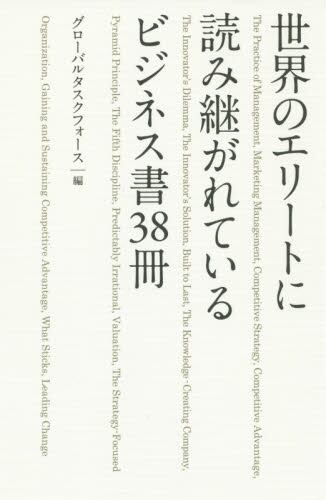 世界のエリートに
The Practice of Management, Marketing Management, Competitive Strategy, Competitive Advantage,
読み継がれている
The Innovator's Dilemma, The Innovator's Solution, Built to Last, The Knowledge-Creating Company,
ビジネス書38冊
Pyramid Principle, The Fifth Discipline, Predictably Irrational, Valuation, The Strategy-Focused
グローバルタスクフォース|編
Organization, Gaining and Sustaining Competitive Advantage, What Sticks, Leading Change